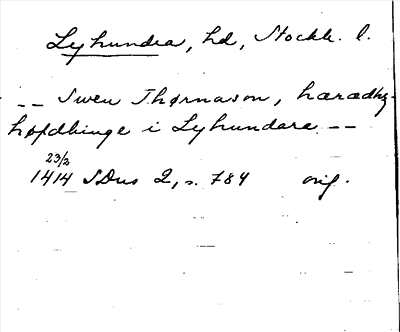 Lyhundra, hd, Stockh. l.
-- Swen Thørnason, hæradhz-
høfdhinge i Lyhundare --
23/2
1414 SDns 2, s. 784 orig.